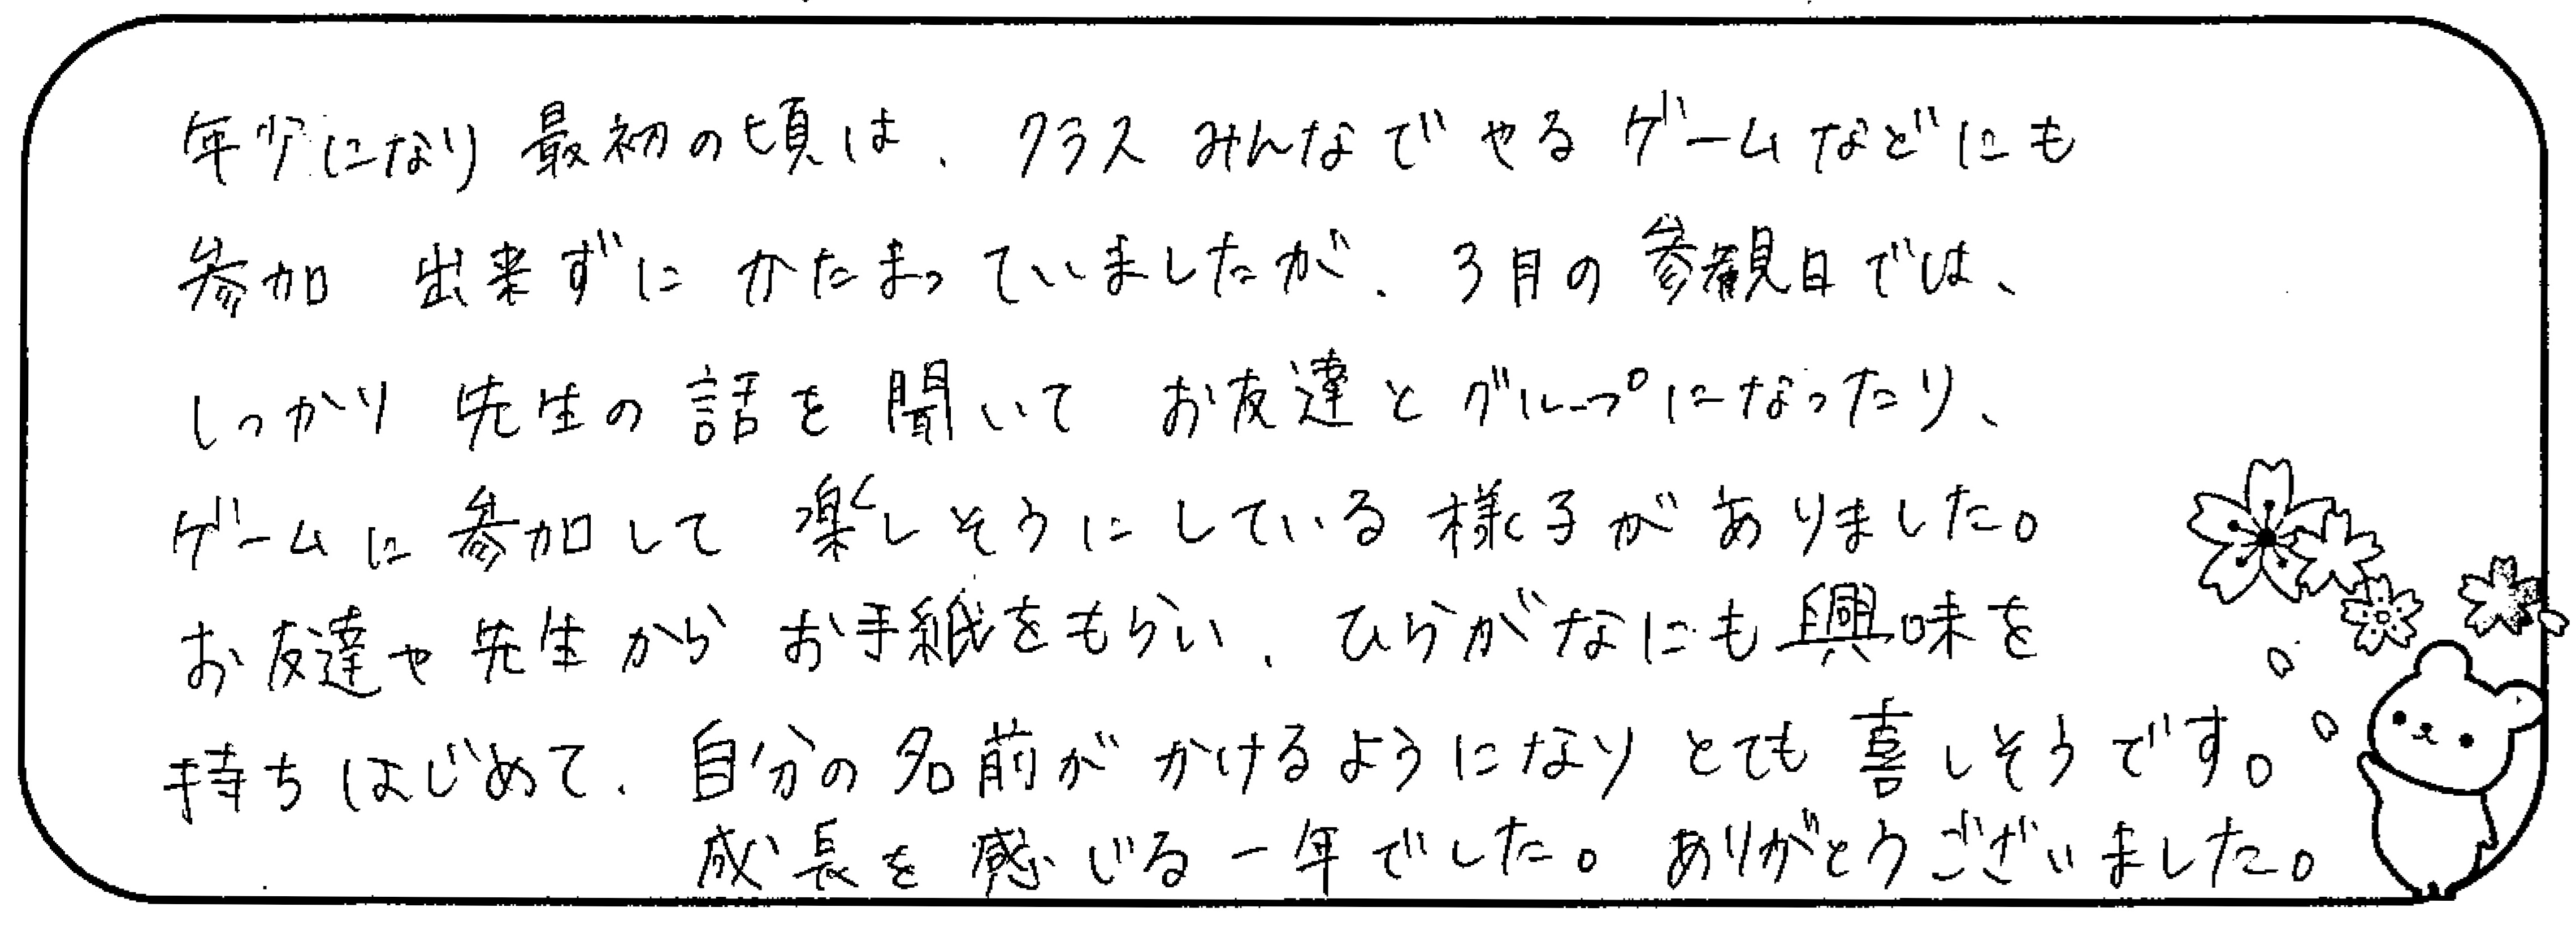 年少になり最初の頃は、クラスみんなでやるゲームなどにも
参加出来ずにかたまっていましたが、3月の参観日では、
しっかり先生の話を聞いてお友達とグループになったり、
ゲームに参加して楽しそうにしている様子がありました。
お友達や先生からお手紙をもらい、ひらがなにも興味を
持ちはじめて、自分の名前がかけるようになりとても喜しそうです。
成長を感じる一年でした。ありがとうございました。